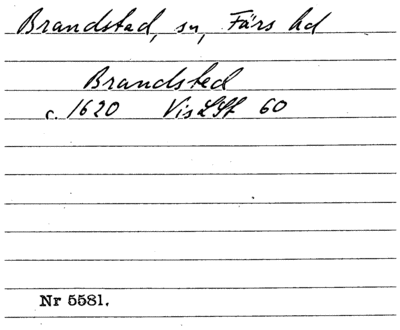 Brandstad, sn, Färs hd
Brandsted
c. 1620 VisLSt 60
Nr 5581.